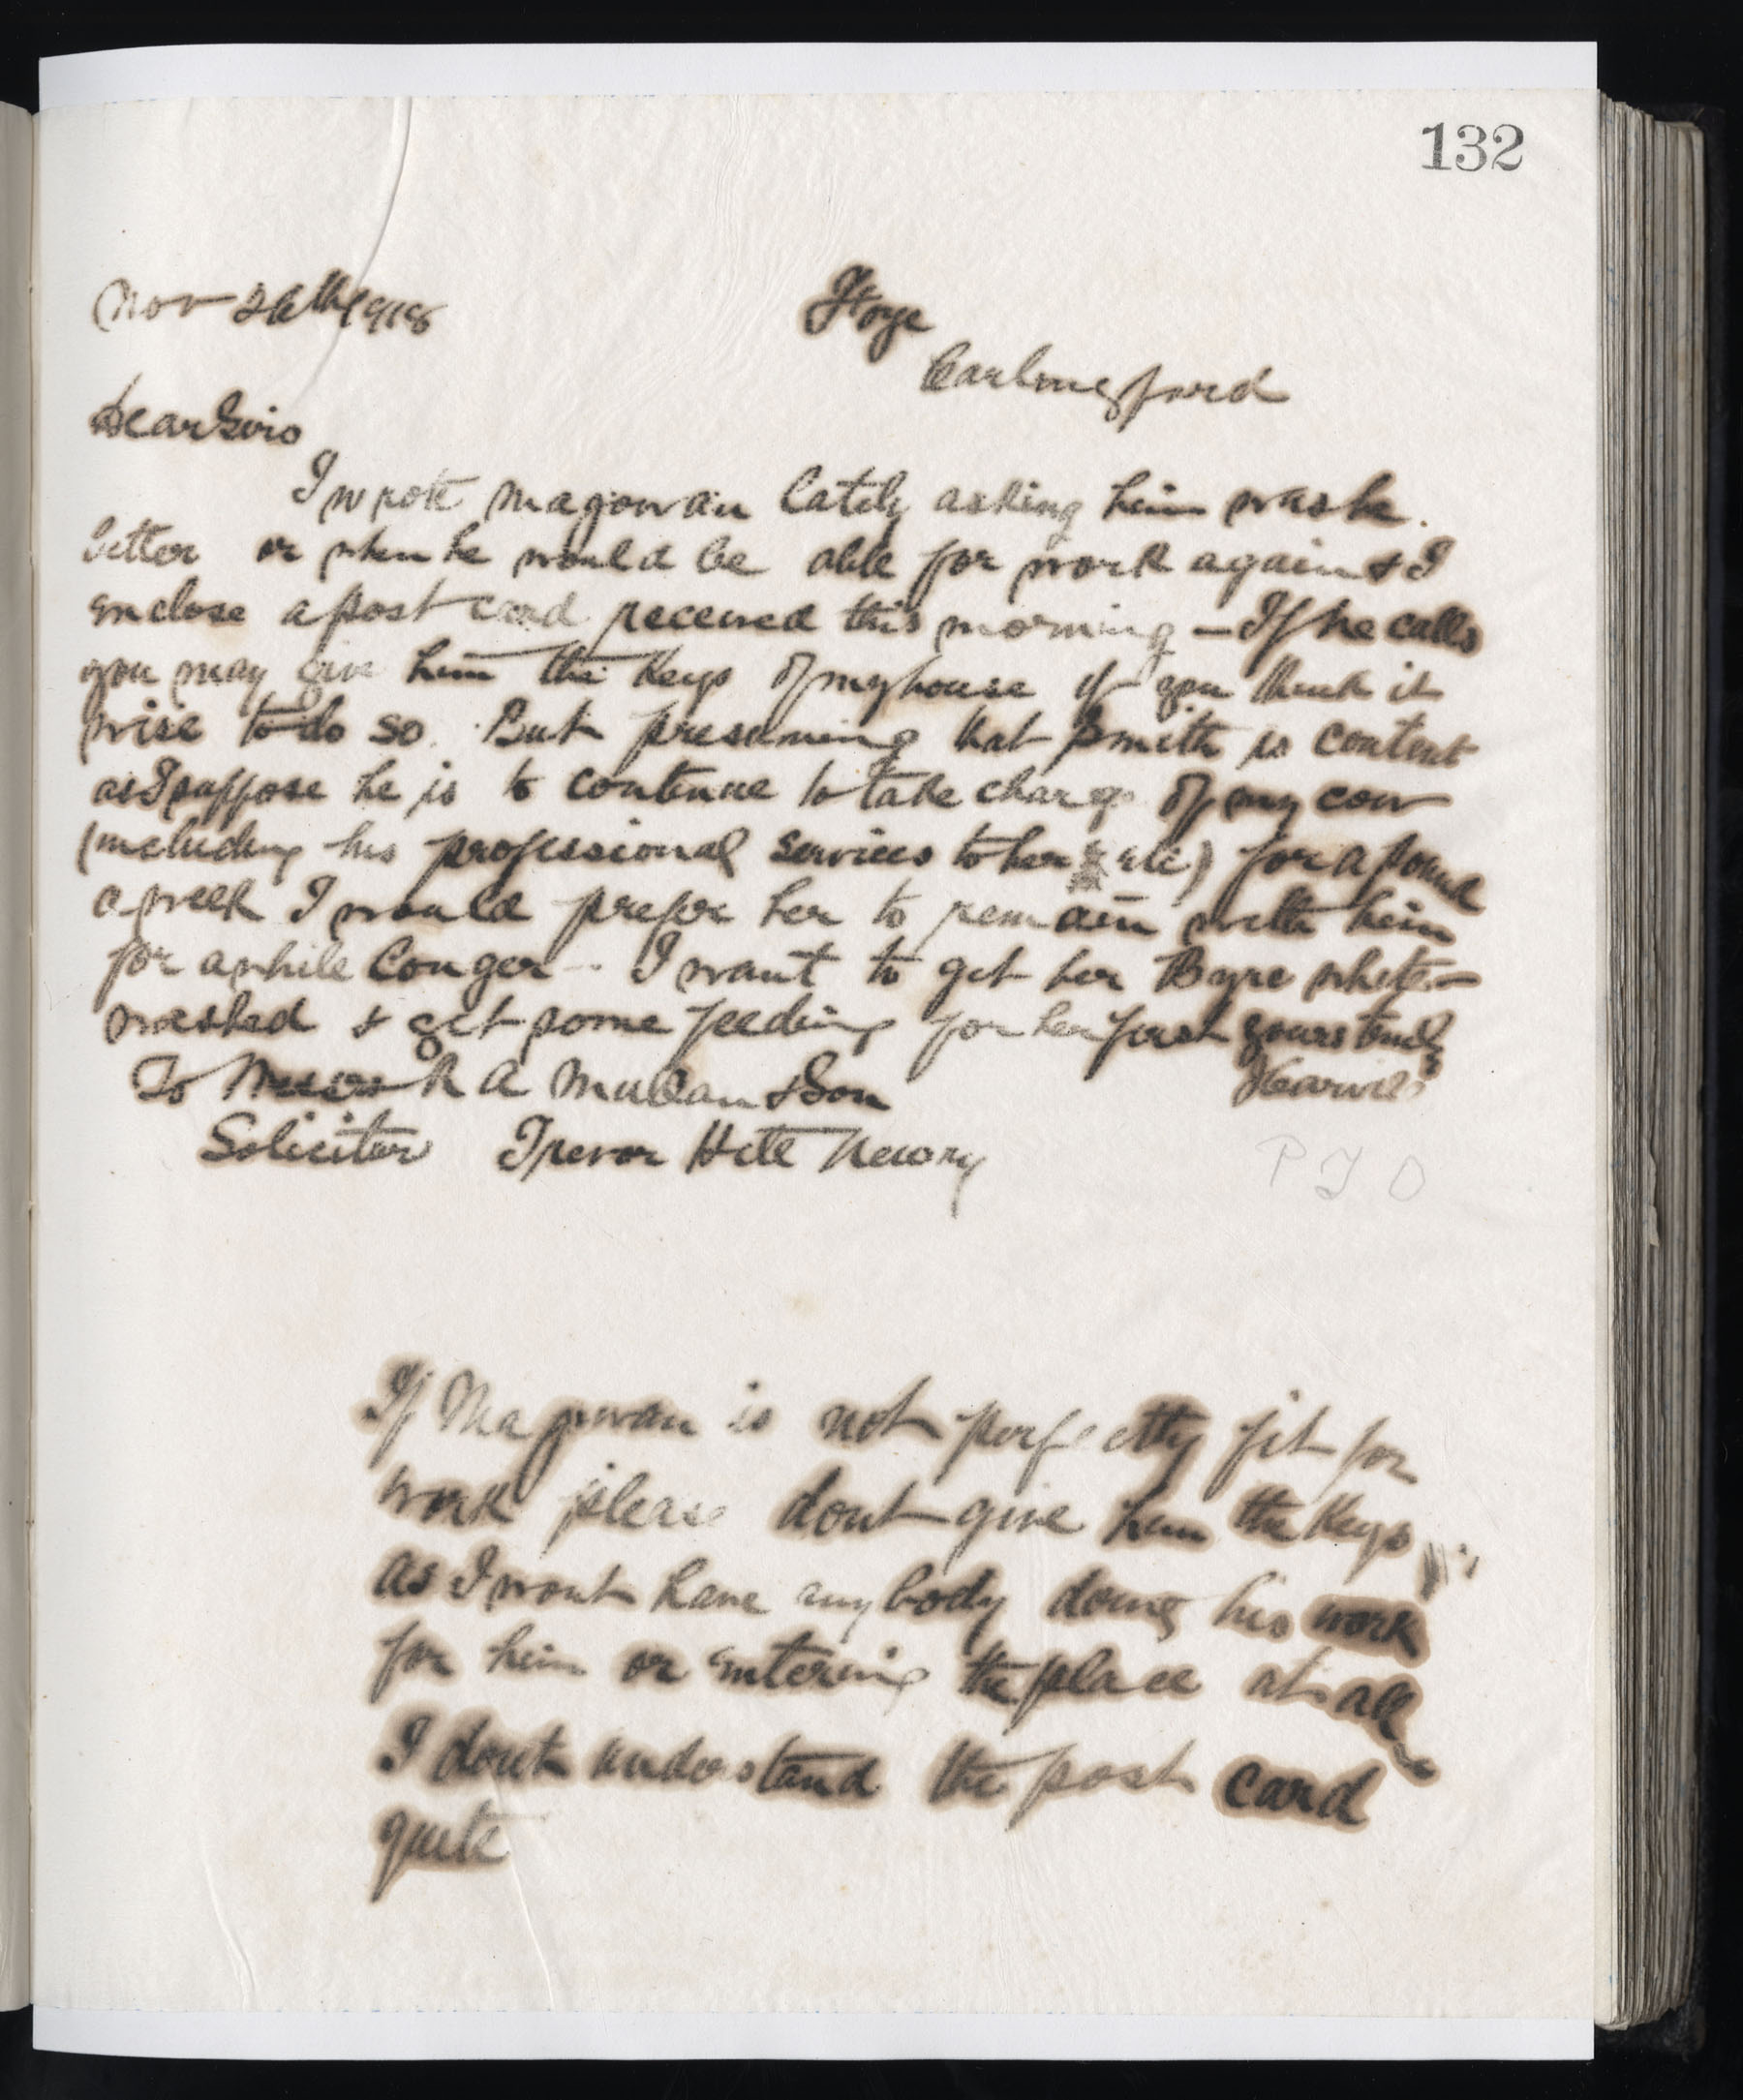 132
Nov 26th 1918 Foye
Carlingford
Dear Sirs
I wrote Magowan lately asking him was he
better or when he would be able for work again & I
enclose a post card received this morning – If he calls
you may give him the Keys of my house if you think it
wise to do so. But presuming that Smith is content
as I suppose he is to continue to take charge of my cow
(including his professional services to her & etc) for a pound
a week I would prefer her to remain with him
for a while longer – I want to get her Byre white-
washed & get some feeding for her first yours truly
To Messrs R A Mullan & Son
Solicitor Trevor Hill Newry
P T O
If Magowan is not perfectly fit for
work please dont give him the Keys
as I wont have anybody doing his work
for him or entering the place at all
I dont understand the post card
quite